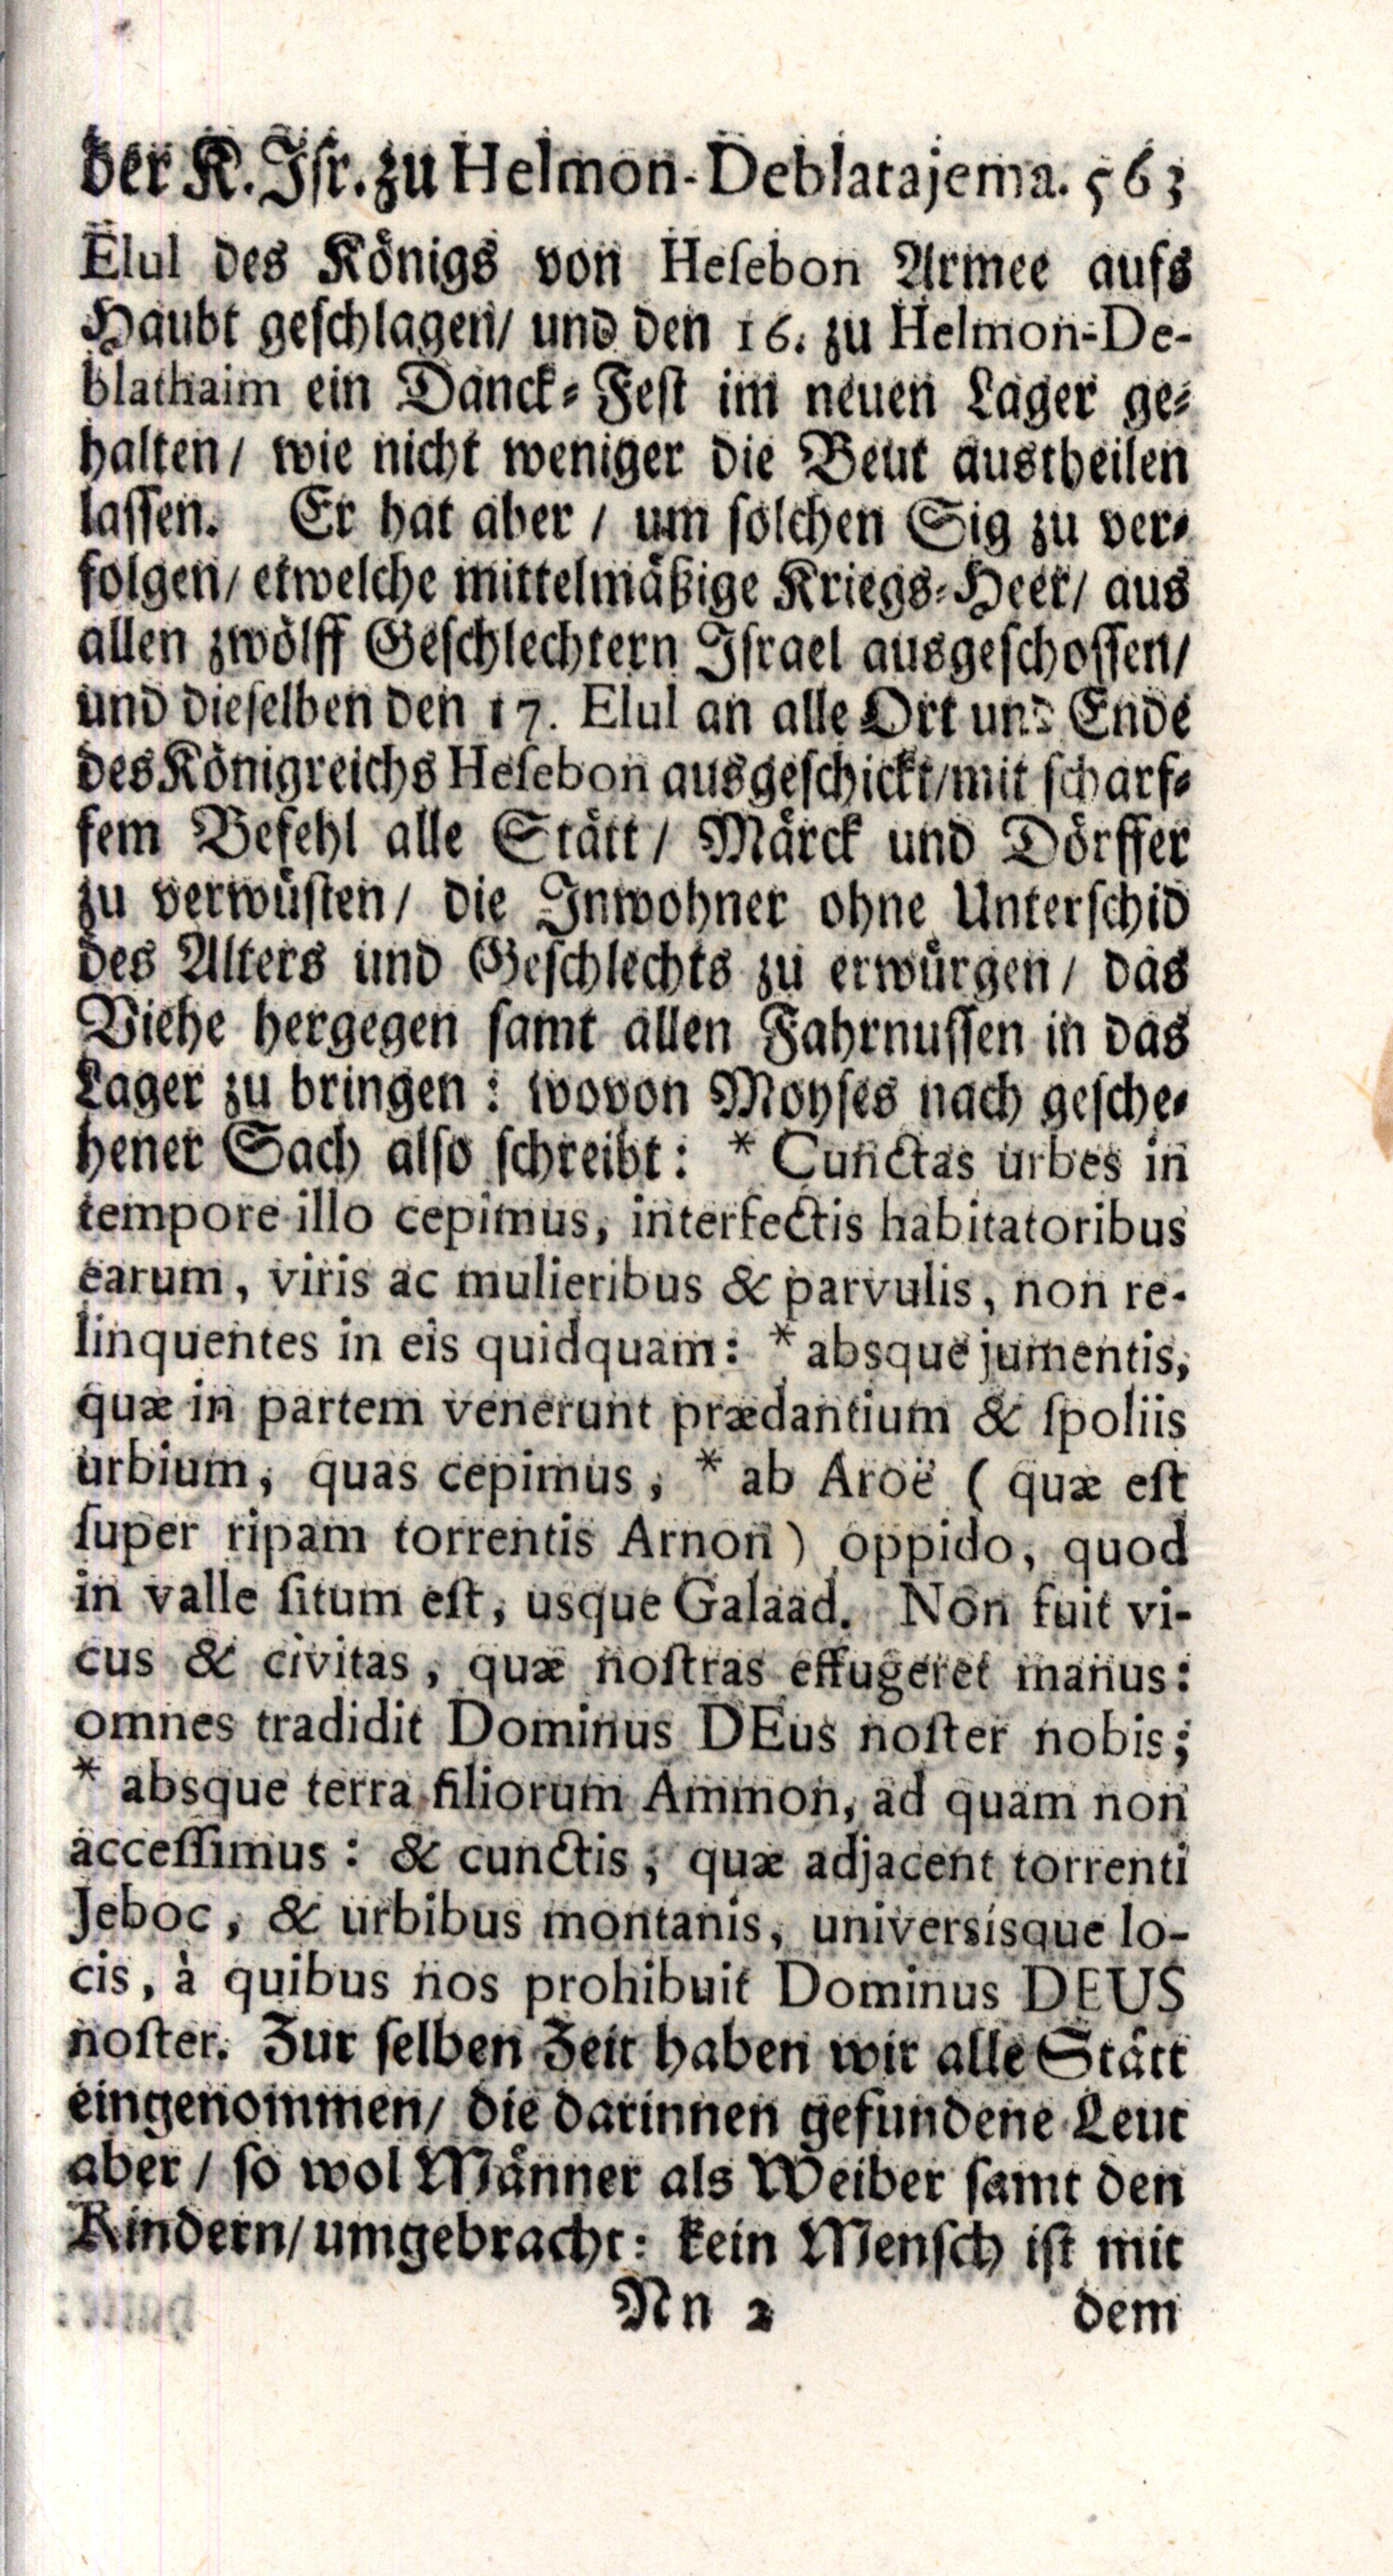 der K. Isr. zu Helmon-Deblatajema. 563
Elul des Königs von Hesebon Armee aufs
Haubt geschlagen/ und den 16. zu Helmon-De-
blathaim ein Danck-Fest im neuen Lager ge-
halten/ wie nicht weniger die Beut austheilen
lassen. Er hat aber / um solchen Sig zu ver-
folgen/ etwelche mittelmäßige Kriegs-Heer/ aus
allen zwölff Geschlechtern Israel ausgeschossen/
und dieselben den 17. Elul an alle Ort und Ende
des Königreichs Hesebon ausgeschickt/ mit scharf-
fem Befehl alle Stätt / Märck und Dörffer
zu verwüsten/ die Inwohner ohne Unterschid
des Alters und Geschlechts zu erwürgen / das
Viehe hergegen samt allen Fahrnussen in das
Lager zu bringen: wovon Moyses nach gesche-
hener Sach also schreibt: * Cunctas urbes in
tempore illo cepimus, interfectis habitatoribus
earum, viris ac mulieribus & parvulis, non re-
linquentes in eis quidquam: * absque jumentis,
quæ in partem venerunt prædantium & spoliis
urbium, quas cepimus, * ab Aroë ( quæ est
super ripam torrentis Arnon) oppido, quod
in valle situm est, usque Galaad. Non fuit vi-
cus & civitas, quæ nostras effugeret manus:
omnes tradidit Dominus DEus noster nobis;
* absque terra filiorum Ammon, ad quam non
accessimus: & cunctis, quæ adjacent torrenti
Jeboc, & urbibus montanis, universisque lo-
cis, à quibus nos prohibuit Dominus DEUS
noster. Zur selben Zeit haben wir alle Stätt
eingenommen/ die darinnen gefundene Leut
aber / so wol Männer als Weiber samt den
Kindern/ umgebracht: kein Mensch ist mit
Nn 2 dem